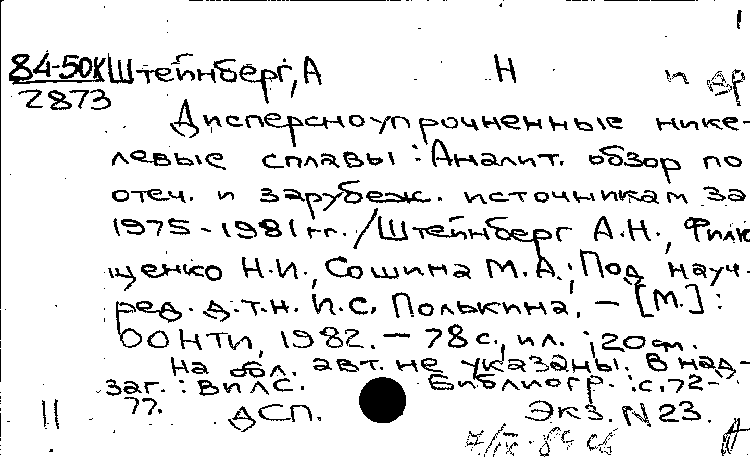 1
84-50К Штейнберг, А Н и др
2873
Дисперсноупрочненные нике-
левые сплавы : Аналит. обзор по
отеч. и зарубеж. источникам за
1975-1981 гг. / Штейнберг А.Н., Филю
щенко Н.И., Сошина М.А.; Под науч.
ред. д.т.н. И.С. Полькина. – [М.] :
ООНТИ, 1982. – 78 с., ил. ; 20 см.
На обл. авт. не указаны. В над-
заг. : ВИЛС. Библиогр. : с. 72-
77.
11 ДСП. Экз. N 23.